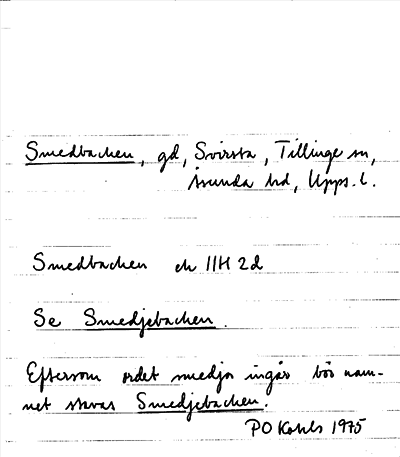 Smedbacken, gd, Svirsta, Tillinge sn,
Åsunda hd, Upps. l.
Smedbacken ek 11H 2d
Se Smedjebacken.
Eftersom ordet smedja ingår bör nam-
net stavas Smedjebacken.
PO Kahls 1975